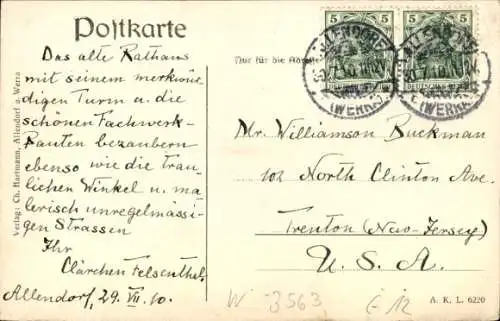 Postkarte
Das alte Rathaus
mit seinem merkwür-
digen Turm u. die
schönen Fachwerk-
Bauten bezaubern
ebenso wie die trau-
lichen Winkel u. ma-
lerisch unregelmässi-
gen Strassen
Ihr
Clärchen Felsenthal,
Allendorf, 29. VII. 10.
Verlag: Ch. Hartmann, Allendorf a. Werra
Nur für die
5 5 5 5
ALLENDORF
(WERRA)
ALLENDORF
(WERRA)
Mr. Williamson Buckman
102 North Clinton Ave.
Trenton (New-Jersey)
U. S. A.
W 3563
A. K. L. 6220